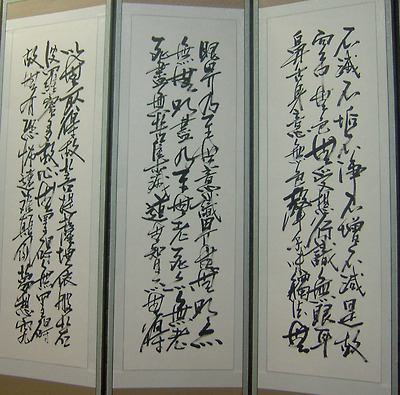 不滅不垢不淨不增不減是故
空中無色無受想行識無眼耳
鼻舌身意無色聲香味觸法無
眼界乃至無意識界無無明亦
無無明盡乃至無老死亦無老
死盡無苦集滅道無智亦無得
以無所得故菩提薩埵依般若
波羅蜜多故心無罣礙無罣礙
故無有恐怖遠離顛倒夢想究